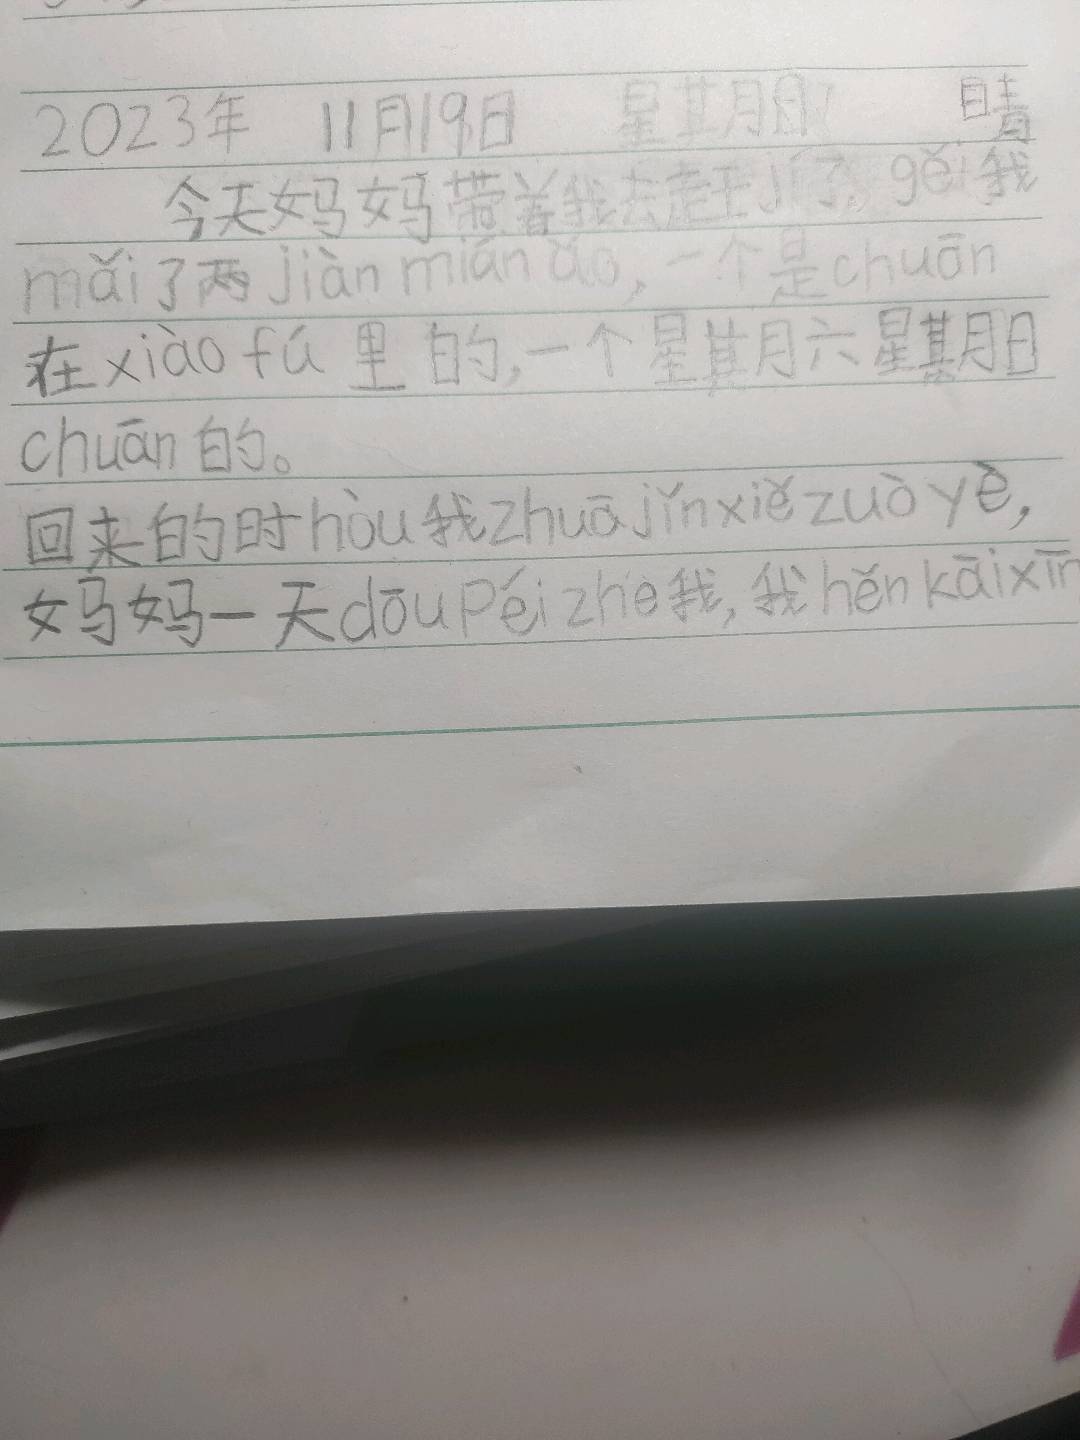 2023年 11月19日 星其月日 晴
今天妈妈带着我去走王jí了, gěi我
mǎi了两jiàn mián ǎo, 一个是chuān
在xiào fú 里的, 一个星其月六星期日
chuān的。
回来的时hòu我zhuā jǐn xiě zuò yè,
妈妈一天dōu péi zhe我, 我hěn kāi xīn